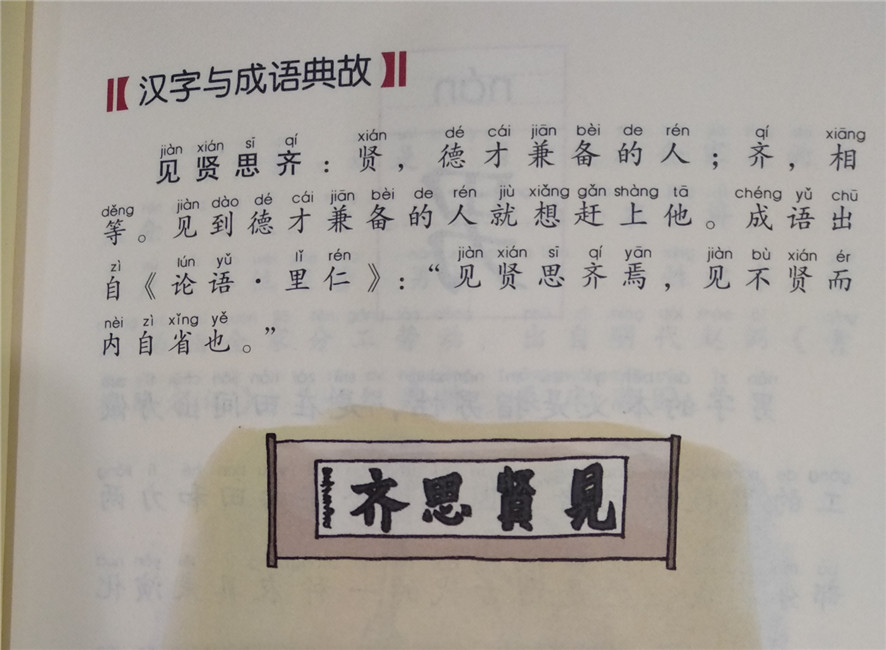 汉字与成语典故
jiàn xián sī qí xián dé cái jiān bèi de rén qí xiāng
见贤思齐：贤，德才兼备的人；齐，相
děng jiàn dào dé cái jiān bèi de rén jiù xiǎng gǎn shàng tā chéng yǔ chū
等。见到德才兼备的人就想赶上他。成语出
zì lún yǔ lǐ rén jiàn xián sī qí yān jiàn bù xián ér
自《论语·里仁》：“见贤思齐焉，见不贤而
nèi zì xǐng yě
内自省也。”
見賢思齐